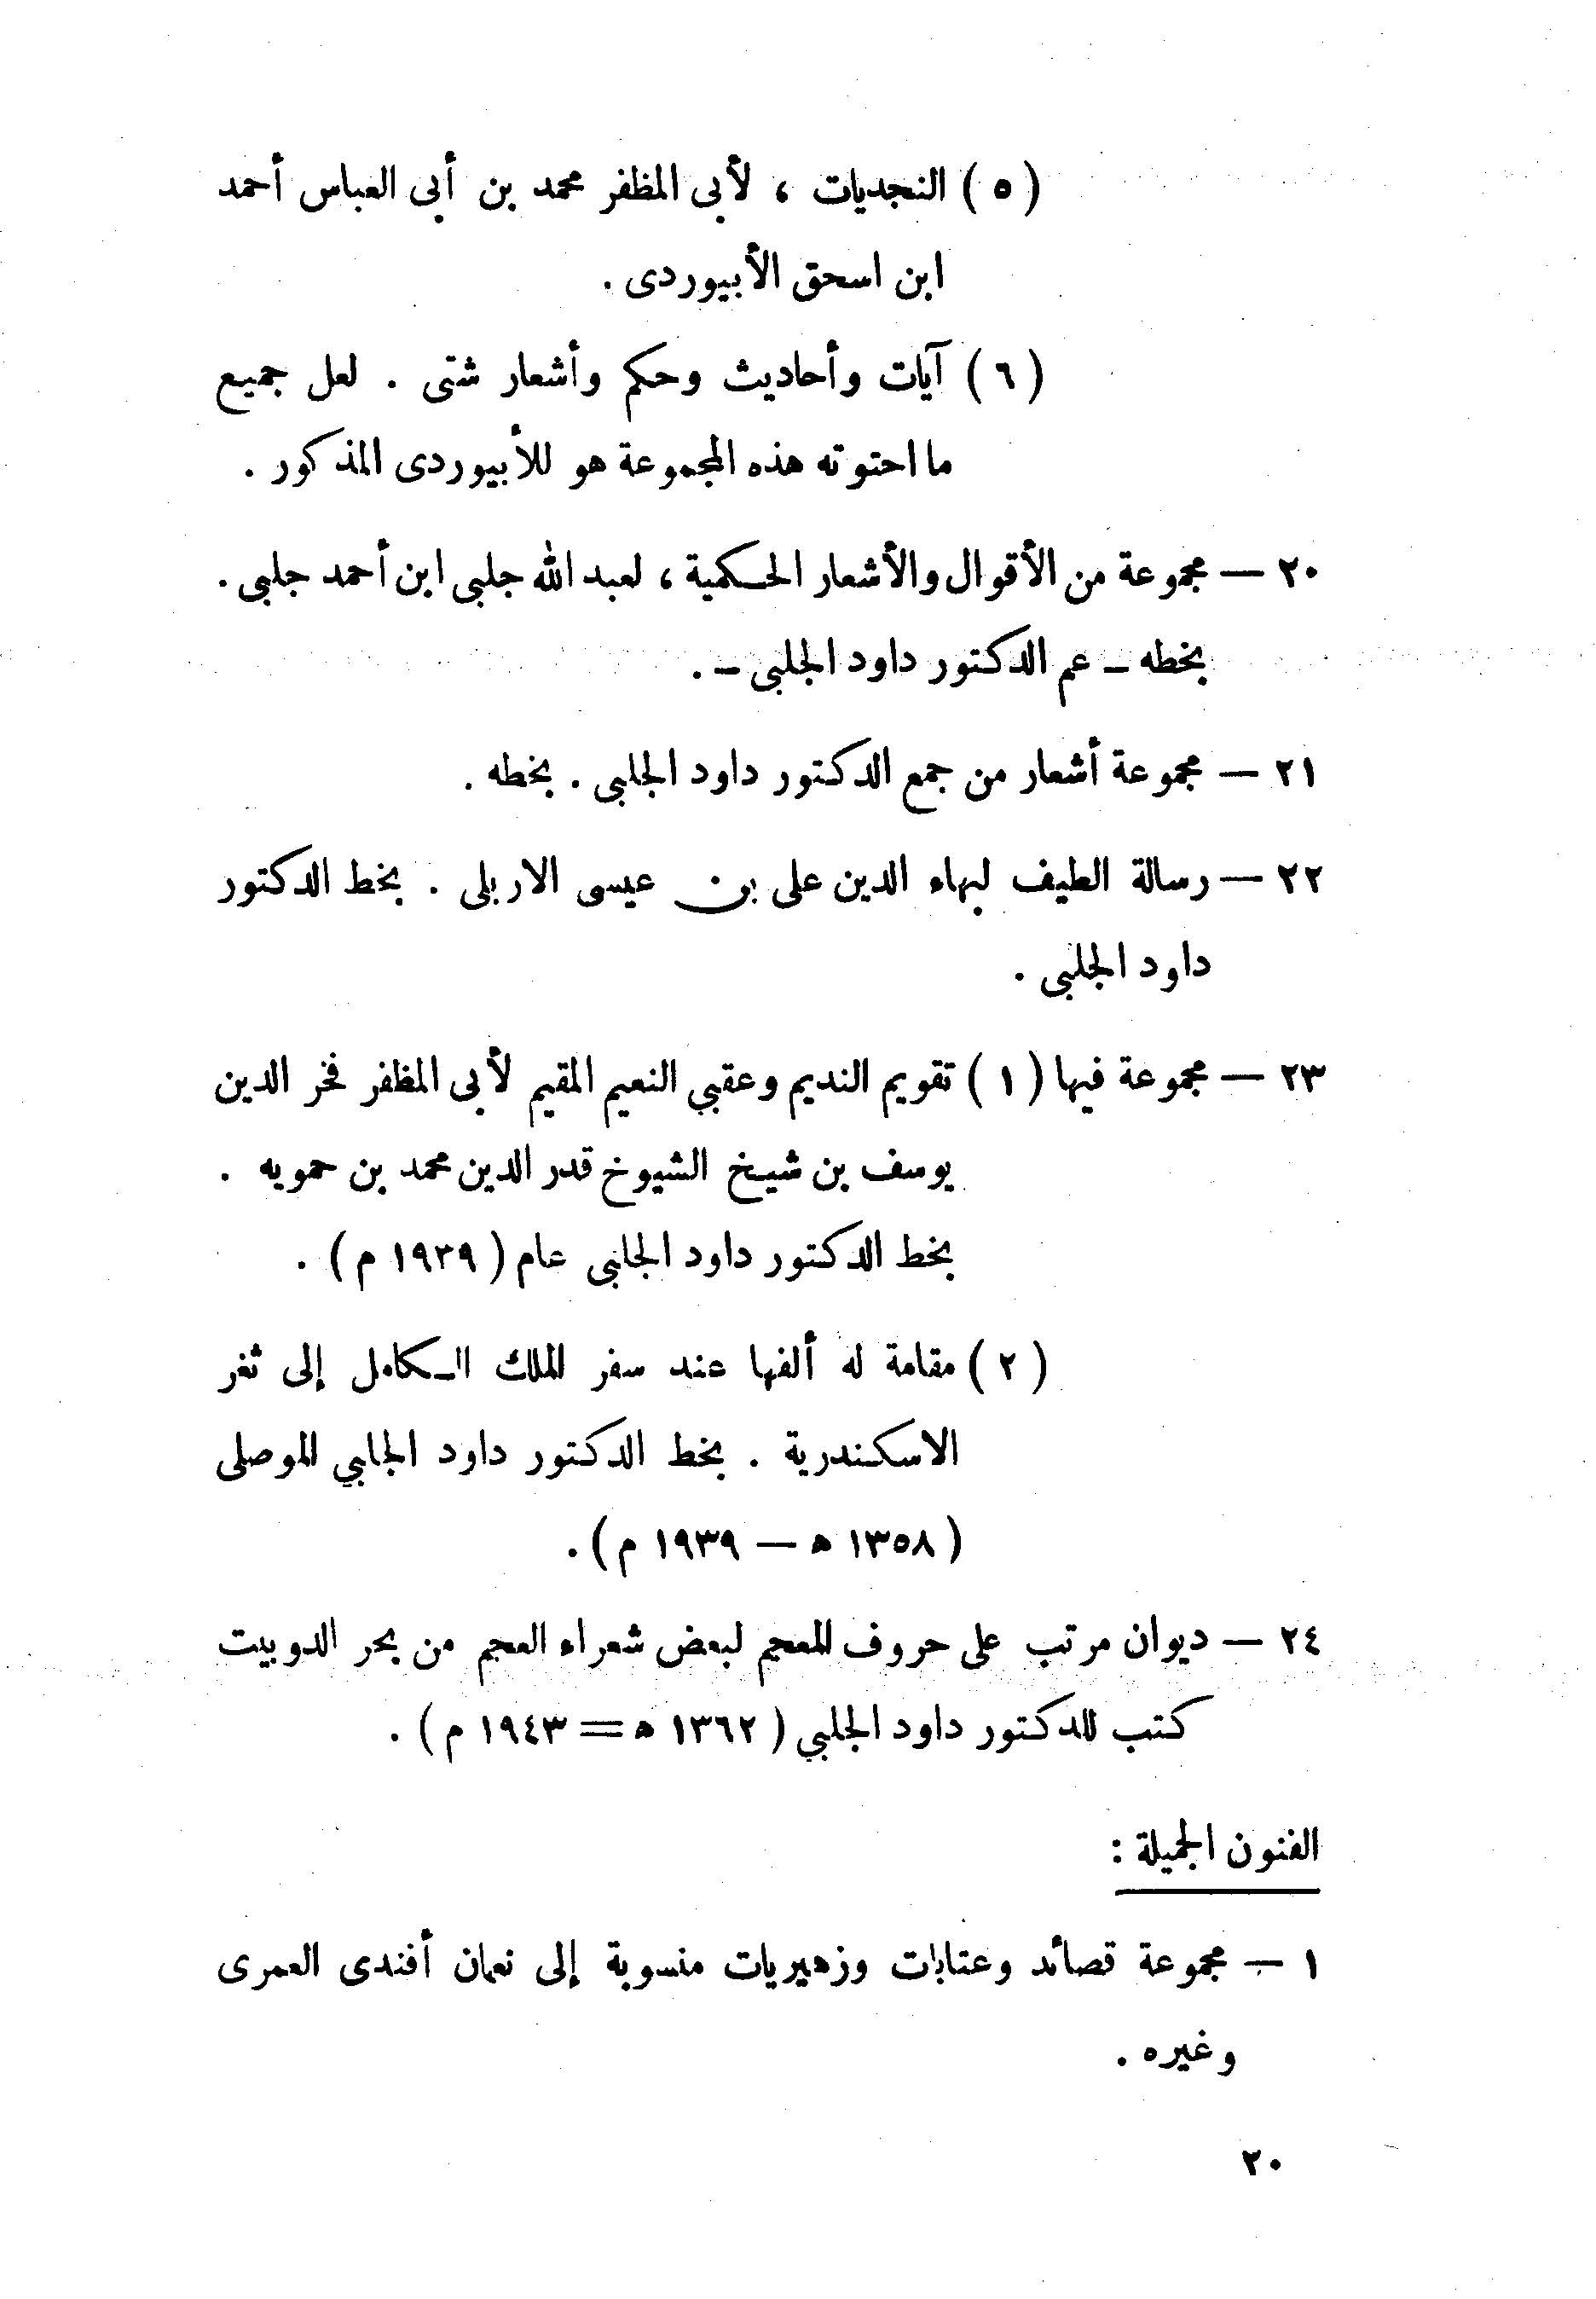 ( ٥ ) النجديات ، لأبى المظفر محمد بن أبى العباس أحمد
ابن اسحق الأبيوردى .
( ٦ ) آيات وأحاديث وحكم وأشعار شتى . لعل جميع
ما احتوته هذه المجموعة هو للأبيوردى المذكور .
٢٠ — مجموعة من الأقوال والأشعار الحكمية ، لعبد الله جلبى ابن أحمد جلبى .
بخطه – عم الدكتور داود الجلبى – .
٢١ — مجموعة أشعار من جمع الدكتور داود الجلبى . بخطه .
٢٢ — رسالة الطيف لبهاء الدين على بن عيسى الاربلى . بخط الدكتور
داود الجلبى .
٢٣ — مجموعة فيها ( ١ ) تقويم النديم وعقبي النعيم المقيم لأبى المظفر فخر الدين
يوسف بن شيخ الشيوخ قدر الدين محمد بن حمويه .
بخط الدكتور داود الجلبى عام ( ١٩٣٩ م ) .
( ٢ ) مقامة له ألفها عند سفر الملك الكامل إلى ثغر
الاسكندرية . بخط الدكتور داود الجلبي الموصلى
( ١٣٥٨ ه — ١٩٣٩ م ) .
٢٤ — ديوان مرتب على حروف المعجم لبعض شعراء العجم من بحر الدوبيت
كتب للدكتور داود الجلبي ( ١٣٦٢ ه = ١٩٤٣ م ) .
الفنون الجميلة :
١ — مجموعة قصائد وعتابات وزهيريات منسوبة إلى نعمان أفندى العمرى
وغيره .
٢٠